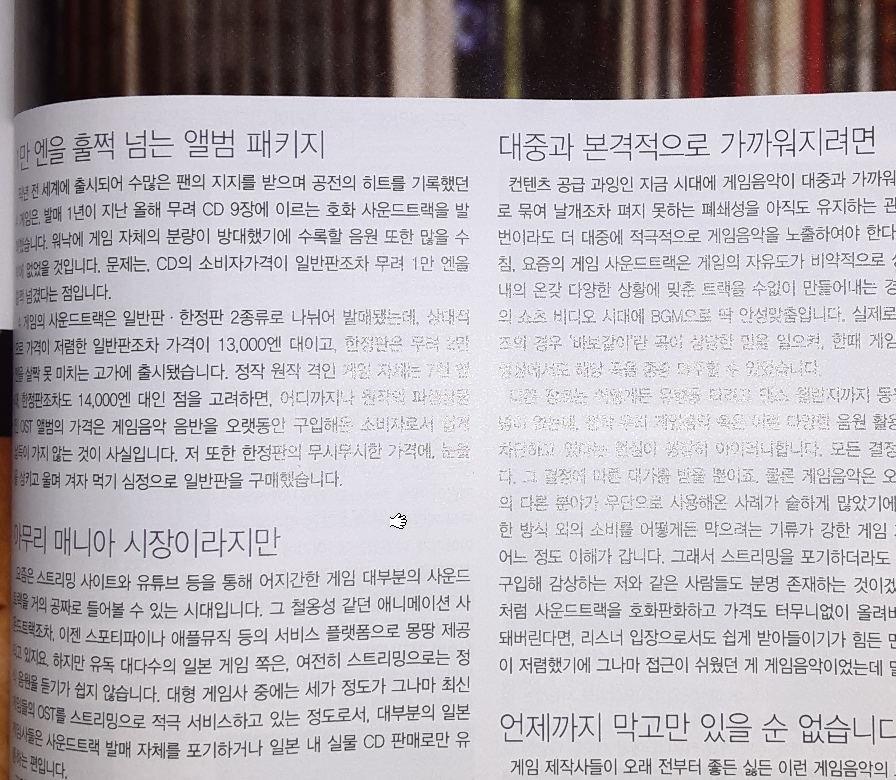 만 엔을 훌쩍 넘는 앨범 패키지
작년 전 세계에 출시되어 수많은 팬의 지지를 받으며 공전의 히트를 기록했던
게임은, 발매 1년이 지난 올해 무려 CD 9장에 이르는 호화 사운드트랙을 발
했습니다. 워낙에 게임 자체의 분량이 방대했기에 수록할 음원 또한 많을 수
없었을 것입니다. 문제는, CD의 소비자가격이 일반판조차 무려 1만 엔을
넘겼다는 점입니다.
게임의 사운드트랙은 일반판 · 한정판 2종류로 나뉘어 발매됐는데, 상대적
으로 가격이 저렴한 일반판조차 가격이 13,000엔 대이고, 한정판은 무려 2만
엔을 살짝 못 미치는 고가에 출시됐습니다. 정작 원작 격인 게임 자체는 7천 엔
한정판조차도 14,000엔 대인 점을 고려하면, 어디까지나 원작의 파생상품
인 OST 앨범의 가격은 게임음악 음반을 오랫동안 구입해온 소비자로서 쉽게
납득이 가지 않는 것이 사실입니다. 저 또한 한정판의 무시무시한 가격에, 눈물
을 삼키고 울며 겨자 먹기 심정으로 일반판을 구매했습니다.
아무리 매니아 시장이라지만
요즘은 스트리밍 사이트와 유튜브 등을 통해 어지간한 게임 대부분의 사운드
트랙을 거의 공짜로 들어볼 수 있는 시대입니다. 그 철옹성 같던 애니메이션 사
운드트랙조차, 이젠 스포티파이나 애플뮤직 등의 서비스 플랫폼으로 몽땅 제공
되고 있지요. 하지만 유독 대다수의 일본 게임 쪽은, 여전히 스트리밍으로는 정
음원을 듣기가 쉽지 않습니다. 대형 게임사 중에는 세가 정도가 그나마 최신
게임들의 OST를 스트리밍으로 적극 서비스하고 있는 정도로서, 대부분의 일본
게임사들은 사운드트랙 발매 자체를 포기하거나 일본 내 실물 CD 판매로만 유
하는 편입니다.
대중과 본격적으로 가까워지려면
컨텐츠 공급 과잉인 지금 시대에 게임음악이 대중과 가까워
로 묶여 날개조차 펴지 못하는 폐쇄성을 아직도 유지하는 관
번이라도 더 대중에 적극적으로 게임음악을 노출하여야 한다
침, 요즘의 게임 사운드트랙은 게임의 자유도가 비약적으로
내의 온갖 다양한 상황에 맞춘 트랙을 수없이 만들어내는 경
의 쇼츠 비디오 시대에 BGM으로 딱 안성맞춤입니다. 실제로
조의 경우 '바보같이'란 곡이 상당한 밈을 일으켜, 한때 게임
해당 곡을 종종 마주할 수 있었습니다.
음원 활용
차단하고 있다는 현실이 굉장히 아이러니합니다. 모든 결정
다. 그 결정에 따른 대가를 받을 뿐이죠. 물론 게임음악은 오
의 다른 분야가 무단으로 사용해온 사례가 숱하게 많았기에
한 방식 외의 소비를 어떻게든 막으려는 기류가 강한 게임
어느 정도 이해가 갑니다. 그래서 스트리밍을 포기하더라도
구입해 감상하는 저와 같은 사람들도 분명 존재하는 것이겠
처럼 사운드트랙을 호화판화하고 가격도 터무니없이 올려버
돼버린다면, 리스너 입장으로서도 쉽게 받아들이기가 힘든 면
이 저렴했기에 그나마 접근이 쉬웠던 게 게임음악이었는데 말
언제까지 막고만 있을 순 없습니다
게임 제작사들이 오래 전부터 좋든 싫든 이런 게임음악의